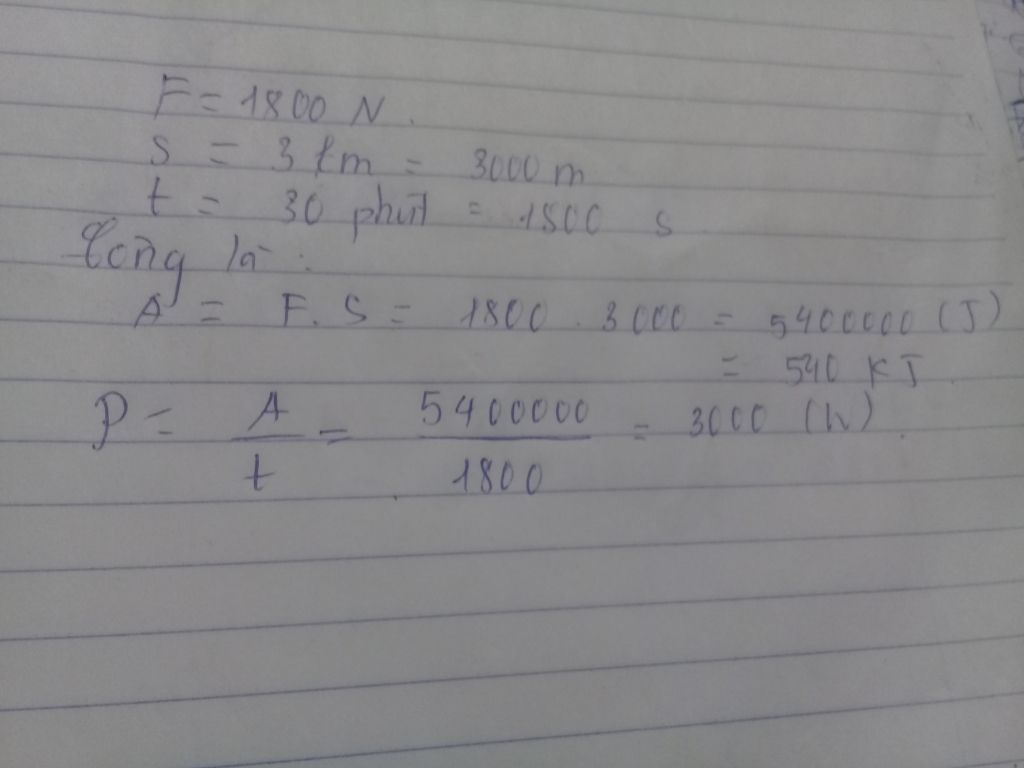 F = 1800 N.
S = 3 km = 3000 m
t = 30 phút = 1800 s
Công là :
A = F. S = 1800 . 3000 = 5400000 (J)
= 540 KJ.
P = A/t = 5400000/1800 = 3000 (W).